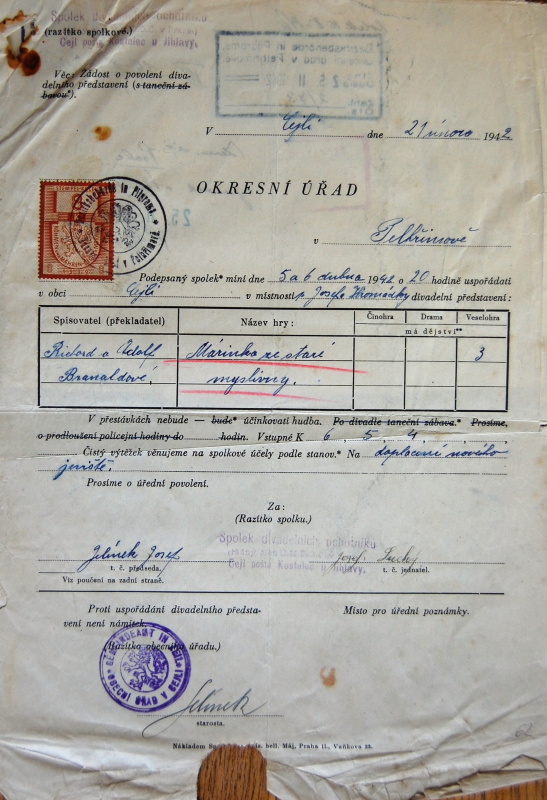 Spolek divadelních ochotníku
(razítko spolkové).
Cejl pošta Kostelec u Jihlavy.
Věc: Žádost o povolení diva-
delního představení (s taneční zá-
bavou*).
V Cejli dne 21 února 1942
OKRESNÍ ÚŘAD
v Pelhřimově
Podepsaný spolek* míní dne 5 a 6 dubna 1942 o 20 hodině uspořádati
v obci Cejli v místnosti p. Josefa Hromádky divadelní představení:
Spisovatel (překladatel) Název hry: Činohra Drama Veselohra
má dějství**
Richard a Adolf Márinka ze staré 3
Branaldové. myslivny.
V přestávkách nebude — bude* účinkovati hudba. Po divadle taneční zábava.* Prosíme,
o prodloužení policejní hodiny do hodin. Vstupné K 6, 5, 4,
Čistý výtěžek věnujeme na spolkové účely podle stanov.* Na doplacení nového
jeviště.
Prosíme o úřední povolení.
Za:
(Razítko spolku.)
Spolek divadelních ochotníku
Cejl pošta Kostelec u Jihlavy.
Jelínek Josef Josef Tuchý
t. č. předseda. t. č. jednatel.
Viz poučení na zadní straně.
Proti uspořádání divadelního předsta-
vení není námitek.
Místo pro úřední poznámky.
(Razítko obecního úřadu.)
GEMEINDEAMT IN CEJL
OBECNÍ ÚŘAD V CEJLI
Jelínek
starosta.
62